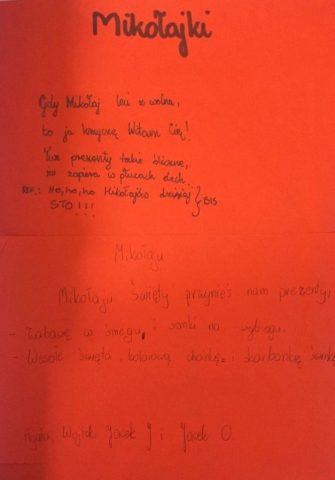 Mikołajki
Gdy Mikołaj leci z wolna,
to ja krzyczę Witam Cię!
Twe prezenty takie śliczne,
że zapiera w płucach dech...
REF.: Ho, ho, ho Mikołajów dzisiaj } BIS
STO!!!
Mikołaju
Mikołaju Święty przynieś nam prezenty,
- Zabawę w śniegu, i sanki na wybiegu.
- Wesołe święta, kolorową choinkę, i skarbonkę
Agata, Wojtek, Jacek J i Jacek O.